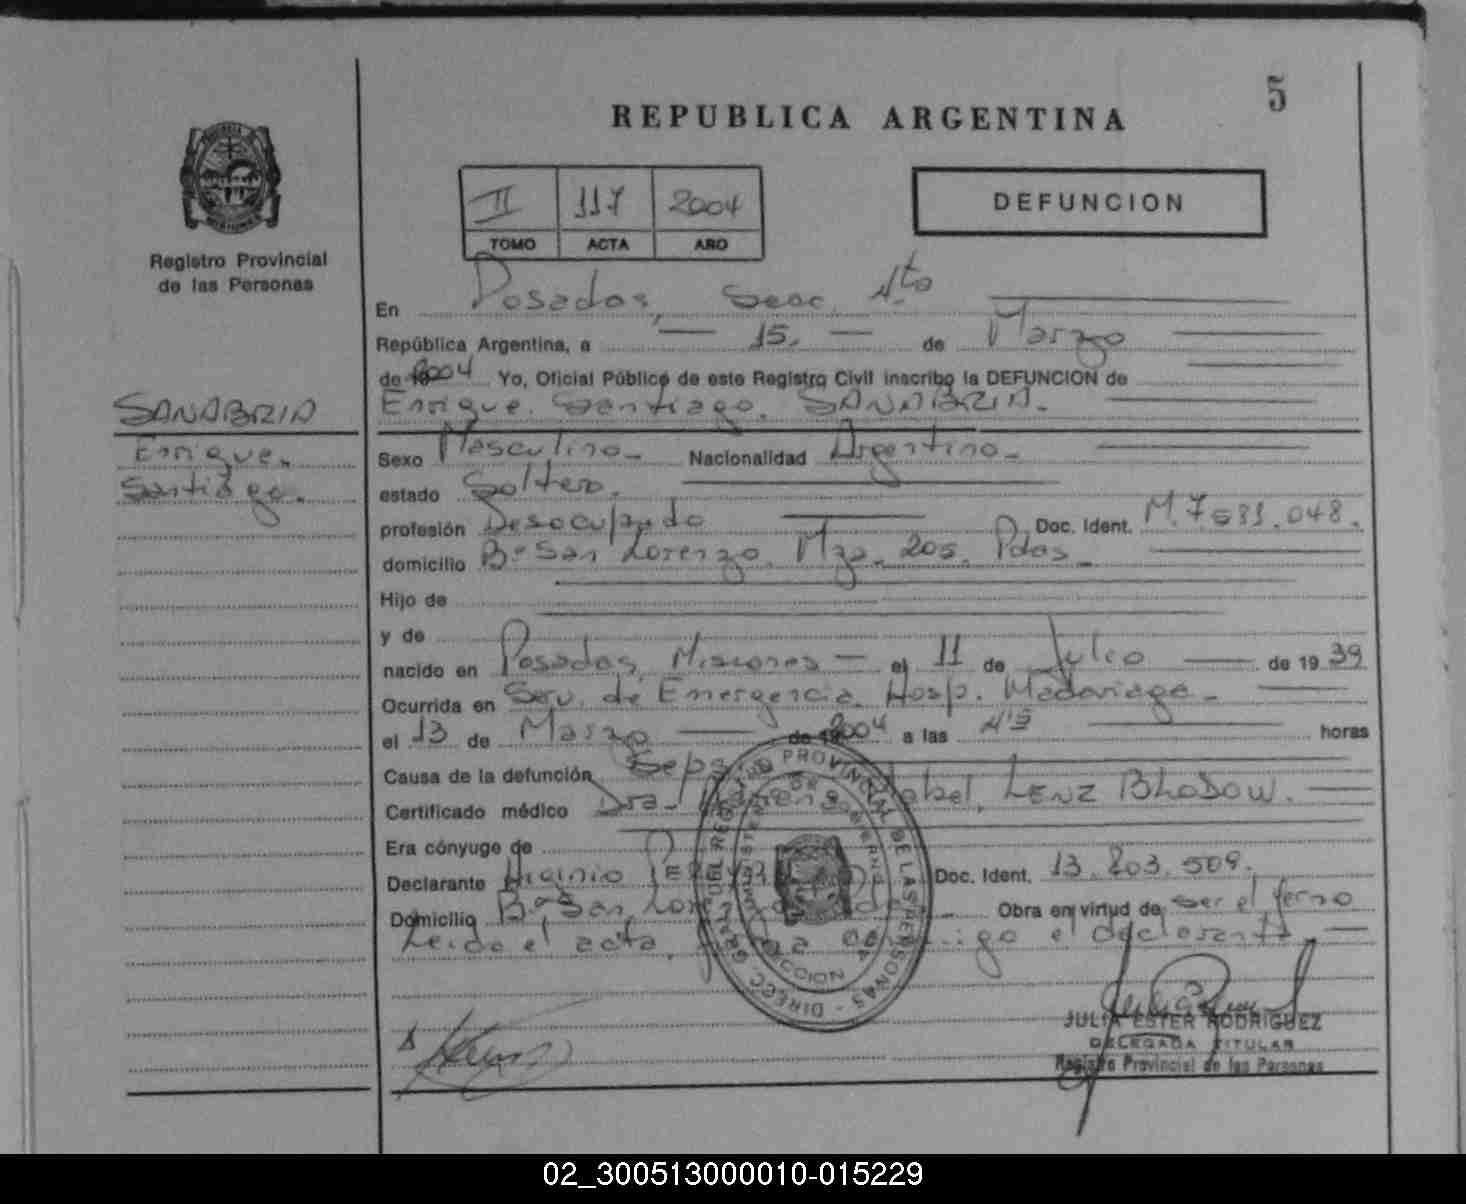 5
REPUBLICA ARGENTINA
II 117 2004
TOMO ACTA AÑO
DEFUNCION
Registro Provincial
de las Personas
En Posadas, Secc. 4ta
República Argentina, a 15. de Marzo
de 19 2004 Yo, Oficial Público de este Registro Civil inscribo la DEFUNCION de
Enrique Santiago. SANABRIA.
SANABRIA
Enrique
Santiago.
Sexo Masculino Nacionalidad Argentino
estado Soltero.
profesión Desocupado Doc. Ident. M.7.581.048.
domicilio B° San Lorenzo. Mza. 205. Pdas
Hijo de
y de
nacido en Posadas, Misiones el 11 de Julio de 19 39
Ocurrida en Serv. de Emergencia Hosp. Madariaga
el 13 de Marzo de 19 2004 a las horas
Causa de la defunción
Certificado médico Dra. LENZ BLODOW.
Era cónyuge de
Declarante Higinio Doc. Ident. 13.203.509.
Domicilio B° San Obra en virtud de ser el yerno
Leída el acta, el declarante
DIRECC. GRAL. DEL REGISTRO PROVINCIAL DE LAS PERSONAS
MINISTERIO DE GOBIERNO
JULIA ESTER RODRIGUEZ
DELEGADA TITULAR
Registro Provincial de las Personas
02_300513000010-015229